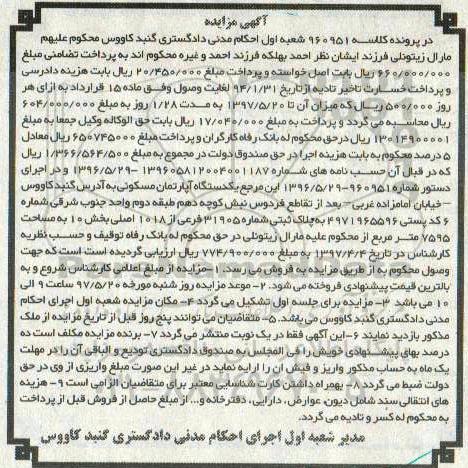 آگهی مزایده
در پرونده کلاسه ۹۶۰۹۵۱ شعبه اول احکام مدنی دادگستری گنبد کاووس محکوم علیهم
مارال زیتونلی فرزند ایشان نظر احمد بهلکه فرزند احمد و غیره محکوم اند به پرداخت تضامنی مبلغ
۶۶۰/۰۰۰/۰۰۰ ریال بابت اصل خواسته و پرداخت مبلغ ۲۰/۴۵۰/۰۰۰ ریال بابت هزینه دادرسی
و پرداخت خسارت تاخیر تادیه از تاریخ ۹۴/۱/۳۱ لغایت وصول وفق ماده ۱۵ قرارداد به ازای هر
روز ۵۰۰/۰۰۰ ریال که میزان آن تا ۱۳۹۷/۵/۲۰ به مدت ۱/۲۸ روز به مبلغ ۶۰۴/۰۰۰/۰۰۰
ریال محاسبه می گردد و پرداخت به مبلغ ۱۷/۰۴۰/۰۰۰ ریال بابت حق الوکاله وکیل جمعا به مبلغ
۱۳۰۱۴۹۰۰۰۱ ریال در حق محکوم له بانک رفاه کارگران و پرداخت مبلغ ۶۵۰۷۴۵۰۰۰ ریال معادل
۵ درصد محکوم به بابت هزینه اجرا در حق صندوق دولت در مجموع به مبلغ ۱/۳۶۶/۵۶۴/۵۰۰ ریال
که در قبال آن حسب نامه های شماره ۱۳۹۶۰۵۸۱۲۰۰۴۰۰۱۱۸۷ -۱۳۹۶/۵/۲۹ و در اجرای
دستور شماره ۹۶۰۹۵۱-۱۳۹۶/۵/۲۹ این مرجع یکدستگاه آپارتمان مسکونی به آدرس گنبد کاووس
– خیابان امامزاده غربی – بعد از تقاطع فردوس نبش کوچه دهم طبقه دوم واحد جنوب شرقی شماره
۶ کد پستی ۴۹۷۱۹۶۵۵۹۶ به پلاک ثبتی شماره ۳۱۹۰۵ فرعی از ۱۰۱۸ اصلی بخش ۱۰ به مساحت
۷۵۹۵ متر مربع از محکوم علیه مارال زیتونلی در حق محکوم له بانک رفاه توقیف و حسب نظریه
کارشناس در تاریخ ۱۳۹۷/۴/۴ به مبلغ ۷۷۴/۹۰۰/۰۰۰ ریال ارزیابی گردیده است است که جهت
وصول محکوم به از طریق مزایده به فروش می رسد. ۱– مزایده از مبلغ اعلامی کارشناس شروع و به
بالاترین قیمت پیشنهادی فروخته می شود. ۲– موعد مزایده روز شنبه مورخه ۹۷/۵/۲۰ ساعت ۹ الی
۱۰ می باشد ۳– مزایده برای جلسه اول تشکیل می گردد ۴– مکان مزایده شعبه اول اجرای احکام
مدنی دادگستری گنبد کاووس می باشد. ۵– متقاضیان می توانند پنج روز قبل از تاریخ مزایده از ملک
مذکور بازدید نمایند ۶–این آگهی فقط در یک نوبت منتشر می گردد ۷– برنده مزایده مکلف است ده
درصد بهای پیشنهادی خویش را فی المجلس به صندوق دادگستری تودیع و الباقی آن را در مهلت
یک ماه به حساب مذکور واریز و فیش آن را ارایه نماید در غیر این صورت مبلغ واریزی از وی در حق
دولت ضبط می گردد ۸– بهمراه داشتن کارت شناسایی معتبر برای متقاضیان الزامی است ۹– هزینه
های انتقالی سند شامل دیون، عوارض، دارایی، دفترخانه و... از مبلغ حاصل از فروش قبل از پرداخت
به محکوم له کسر و تادیه می گردد.
مدیر شعبه اول اجرای احکام مدنی دادگستری گنبد کاووس